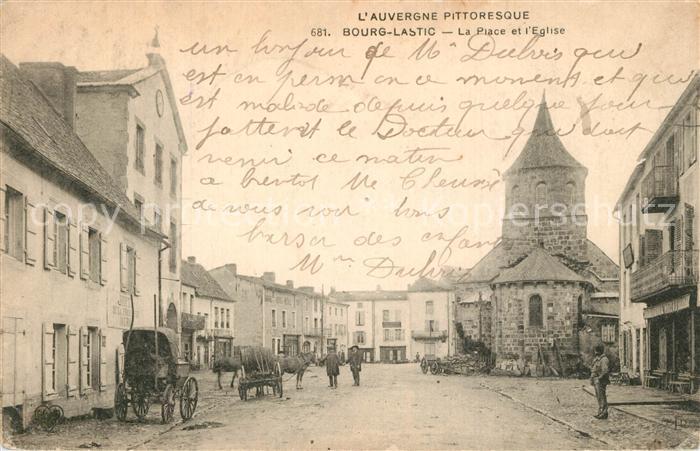 L'AUVERGNE PITTORESQUE
681. BOURG-LASTIC — La Place et l'Eglise
un bonjour de Mr Dubris qui
est en perm on ce moment et qui
est malade depuis quelque jour
jattend le Docteur qui doit
venir ce matin
a bientot Me Cheurié
de vous voir tous
baiser des enfants
Mme Dubris
copy protection
kopierschutz